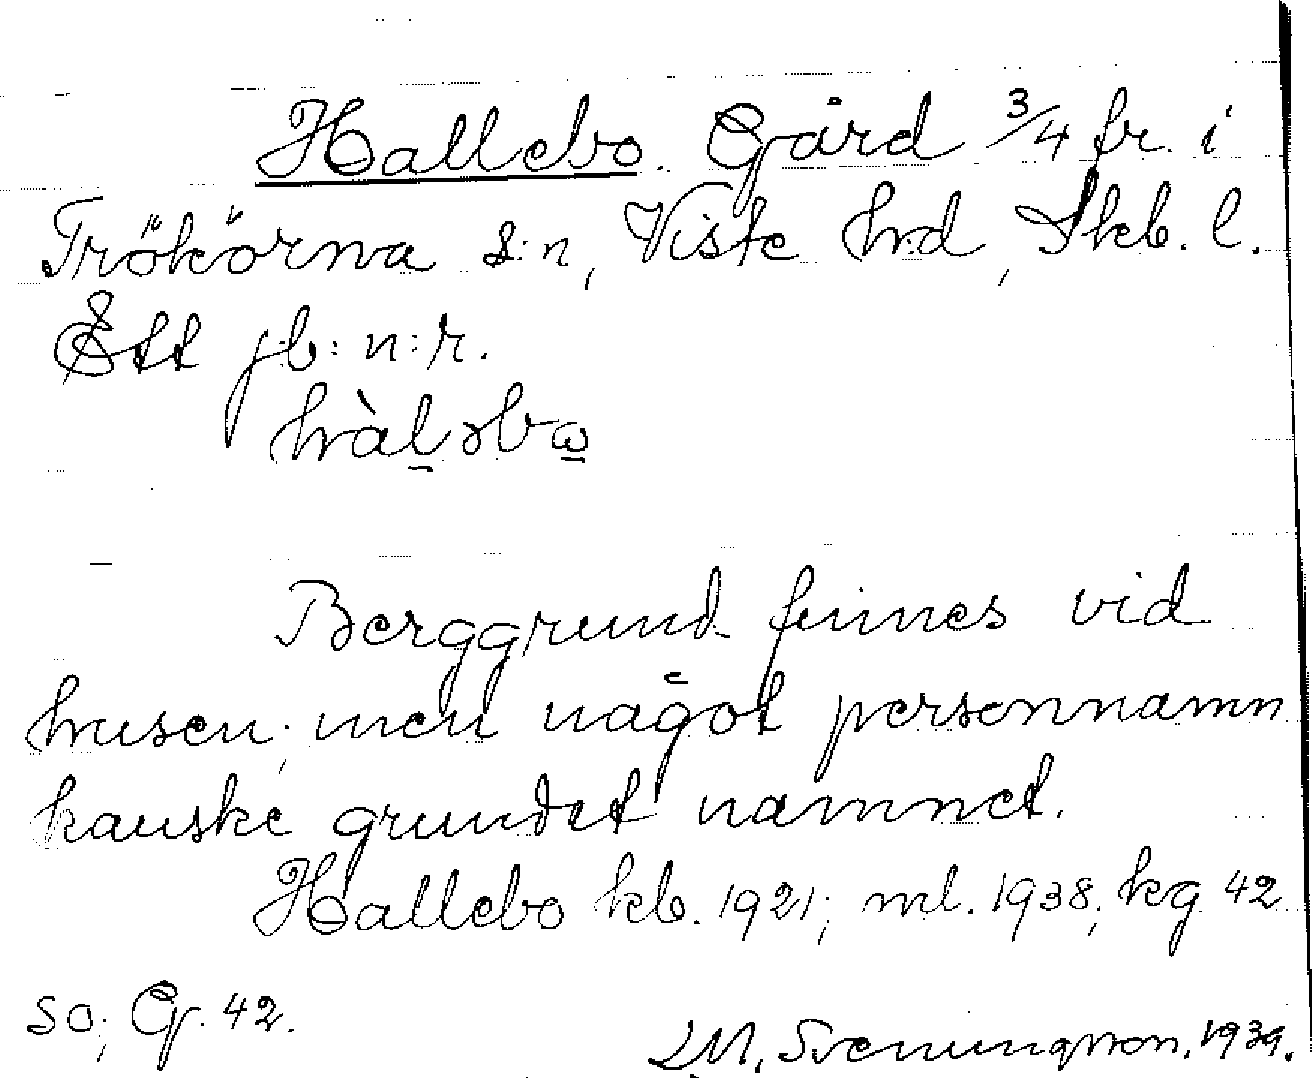 Hallebo. Gård 3/4 fr. i
Trökörna s:n, Viste hrd, Skb. l.
Ett jb:n:r.
hàl̠əbω̠
Berggrund finnes vid
husen; men något personnamn
kanske grundet namnet.
Hallebo kb. 1921; ml. 1938, kg 42
so; G. 42.
LM. Svenungsson. 1939.